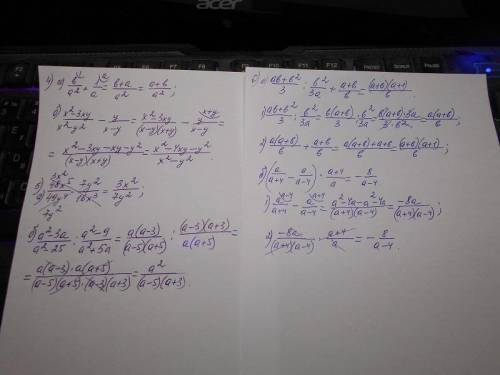 acer
4) а) b/a² + 1/a = b+a/a² = a+b/a² ;
б) x²-3xy/x²-y² - y/x-y = x²-3xy/(x-y)(x+y) - y/x-y =
= x²-3xy-xy-y²/(x-y)(x+y) = x²-4xy-y²/x²-y² .
5)
= 3x²/7y² ;
б) a²-3a/a²-25 : a²-9/a²+5a = a(a-3)/(a-5)(a+5) : (a-3)(a+3)/a(a+5) =
= a(a-3)·a(a+5)/(a-5)(a+5)·(a-3)(a+3) = a²/(a-5)(a+3) .
а) ab+b²/3 : b²/3a + a+b/b = (a+b)(a+1)/b .
1) ab+b²/3 : b²/3a = b(a+b)/3 : b²/3a = b(a+b)·3a/3·b² = a(a+b)/b ;
2) a(a+b)/b + a+b/b = a(a+b)+a+b/b = (a+b)(a+1)/b .
б) (a/a+4 - a/a-4) · a+4/a = - 8/a-4
1) a/a+4 - a/a-4 = a²-4a-a²-4a/(a+4)(a-4) = -8a/(a+4)(a-4) ;
2) -8a/(a+4)(a-4) · a+4/a = - 8/a-4 .